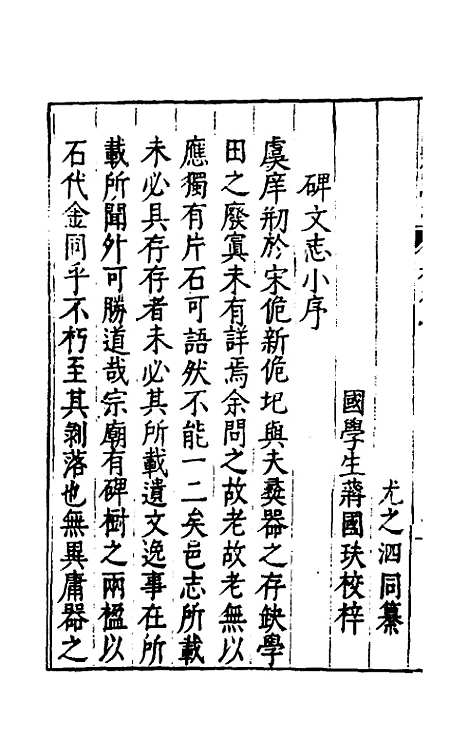 尤之泗同纂
國學生蔣國玞校梓
碑文志小序
虞庠剏於宋佹新佹圯與夫彝器之存缺學
田之廢寘未有詳焉余問之故老故老無以
應獨有片石可語然不能一二矣邑志所載
未必具存存者未必其所載遺文逸事在所
載所聞外可勝道哉宗廟有碑樹之兩楹以
石代金同乎不朽至其剝落也無異庸器之